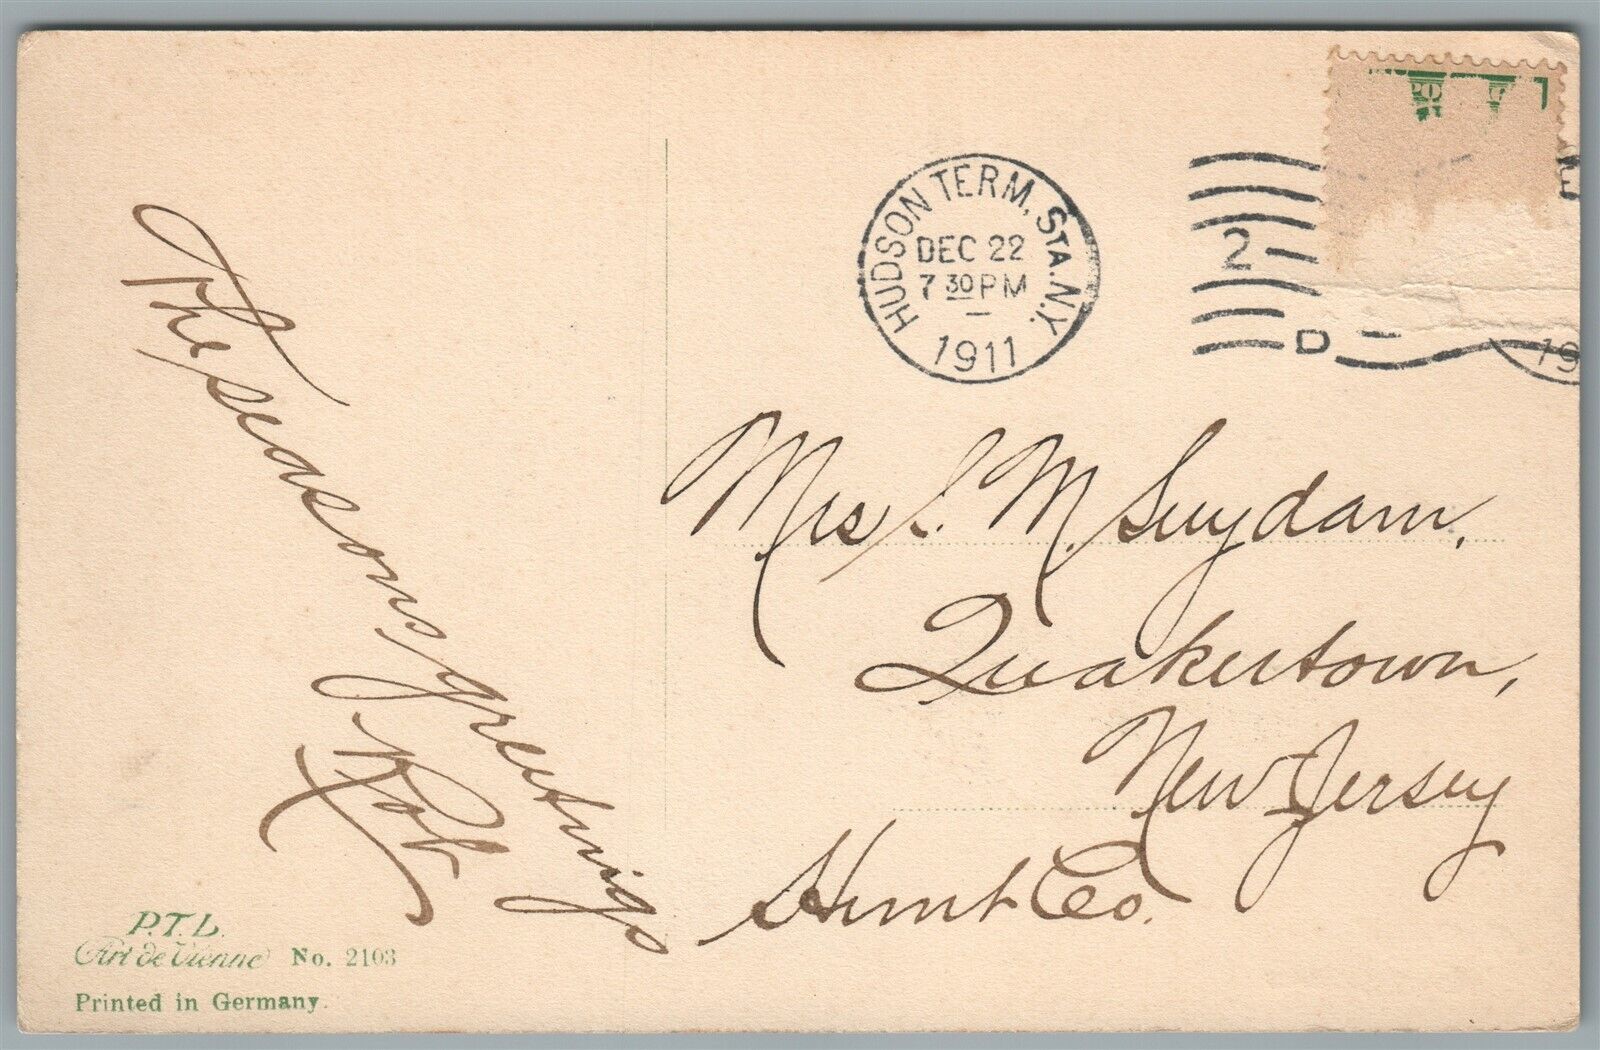 The seasons greetings
Rob
HUDSON TERM. STA. N.Y.
DEC 22
7 30 PM
1911
2
D
19
Mrs. M. Suydam,
Quakertown,
New Jersey
Hunt Co.
P.T.L.
Art de Vienne No. 2103
Printed in Germany.